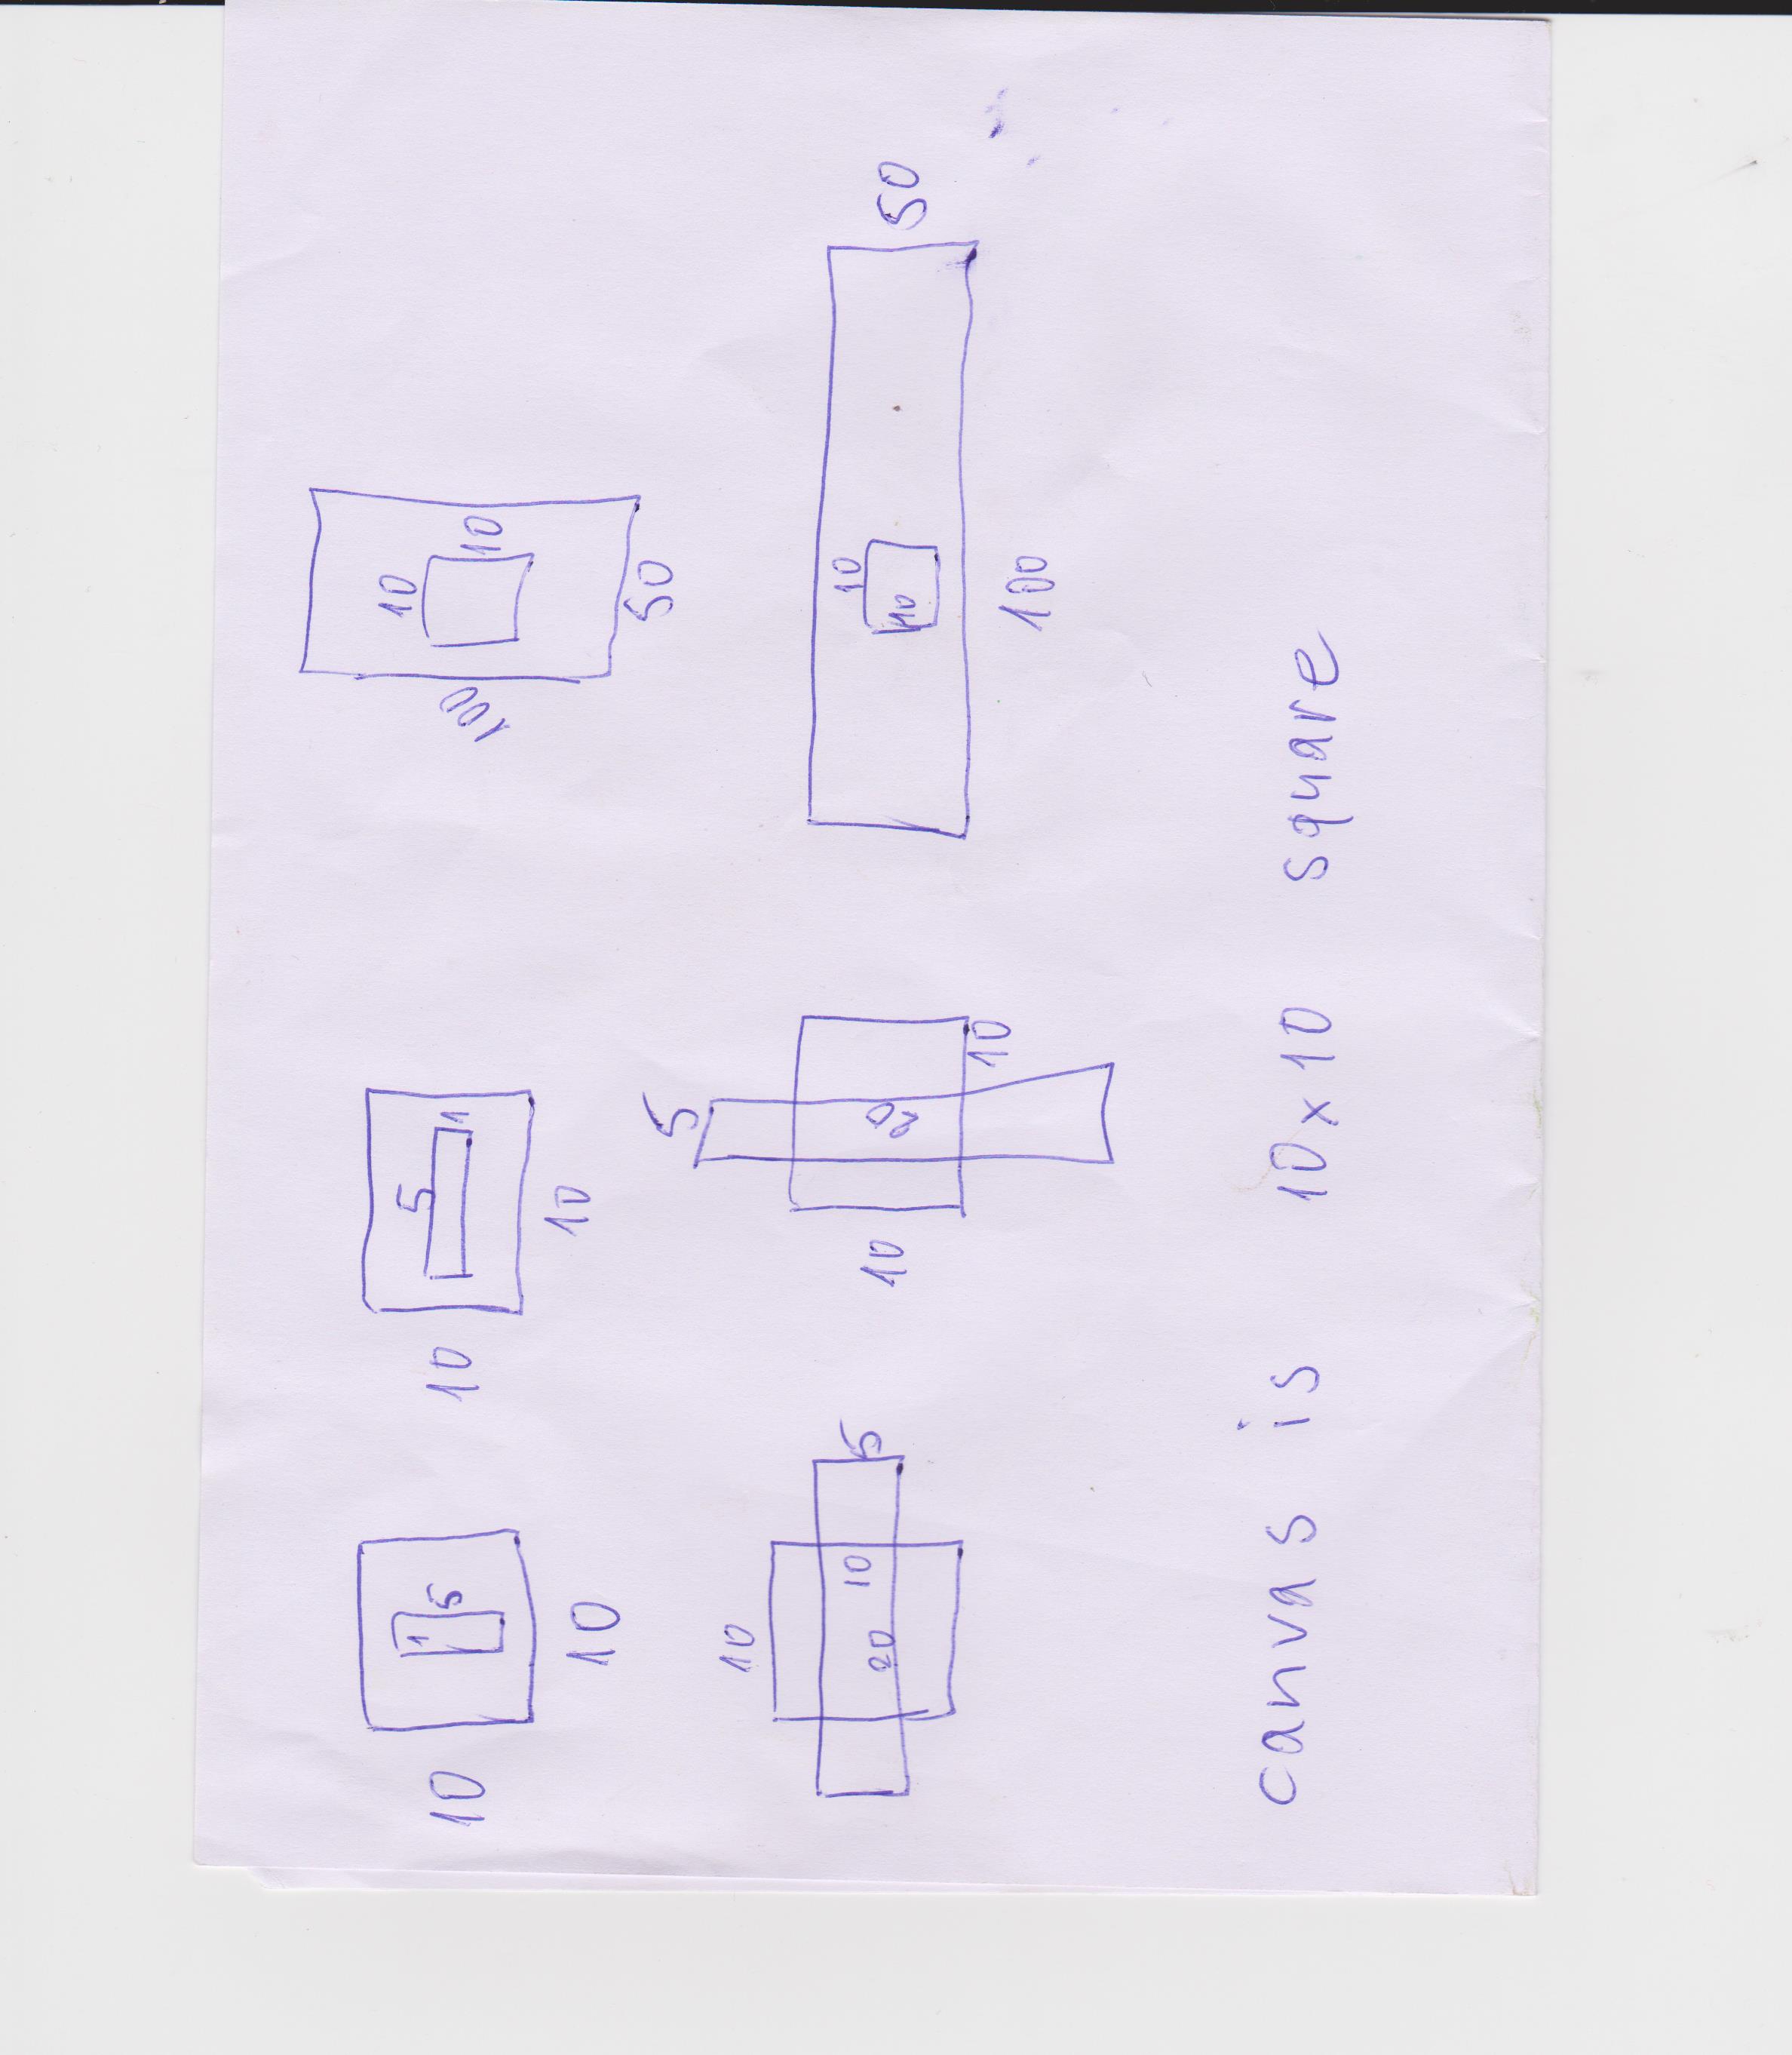 1
5
10
10
5
1
10
10
10
10
100
50
10
10
20
5
5
20
10
10
10
10
50
100
canvas is 10 x 10 square